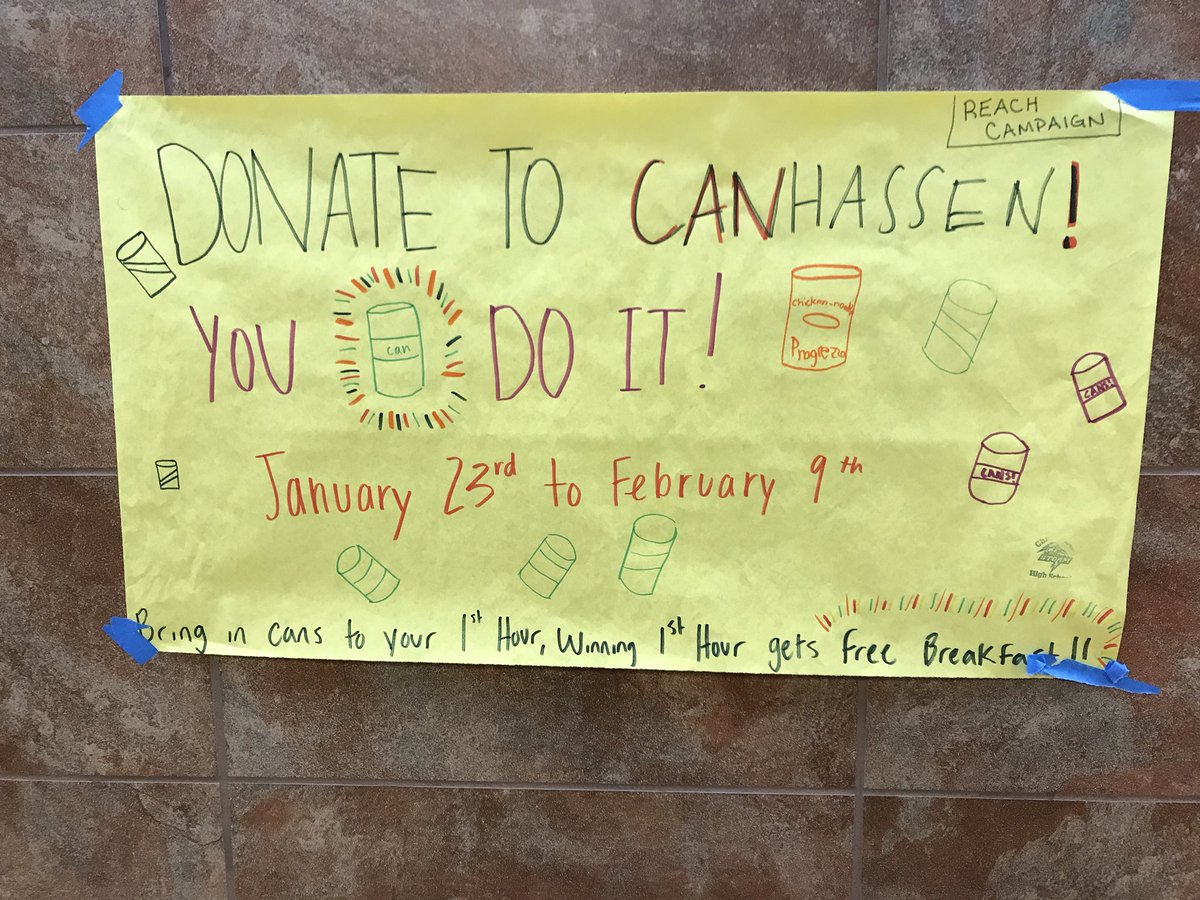 REACH
CAMPAIGN
DONATE TO CANHASSEN!
YOU can DO IT!
Progresso
CANS!
CANS!
January 23rd to February 9th
High
Bring in cans to your 1st Hour, Winning 1st Hour gets free Breakfast!!